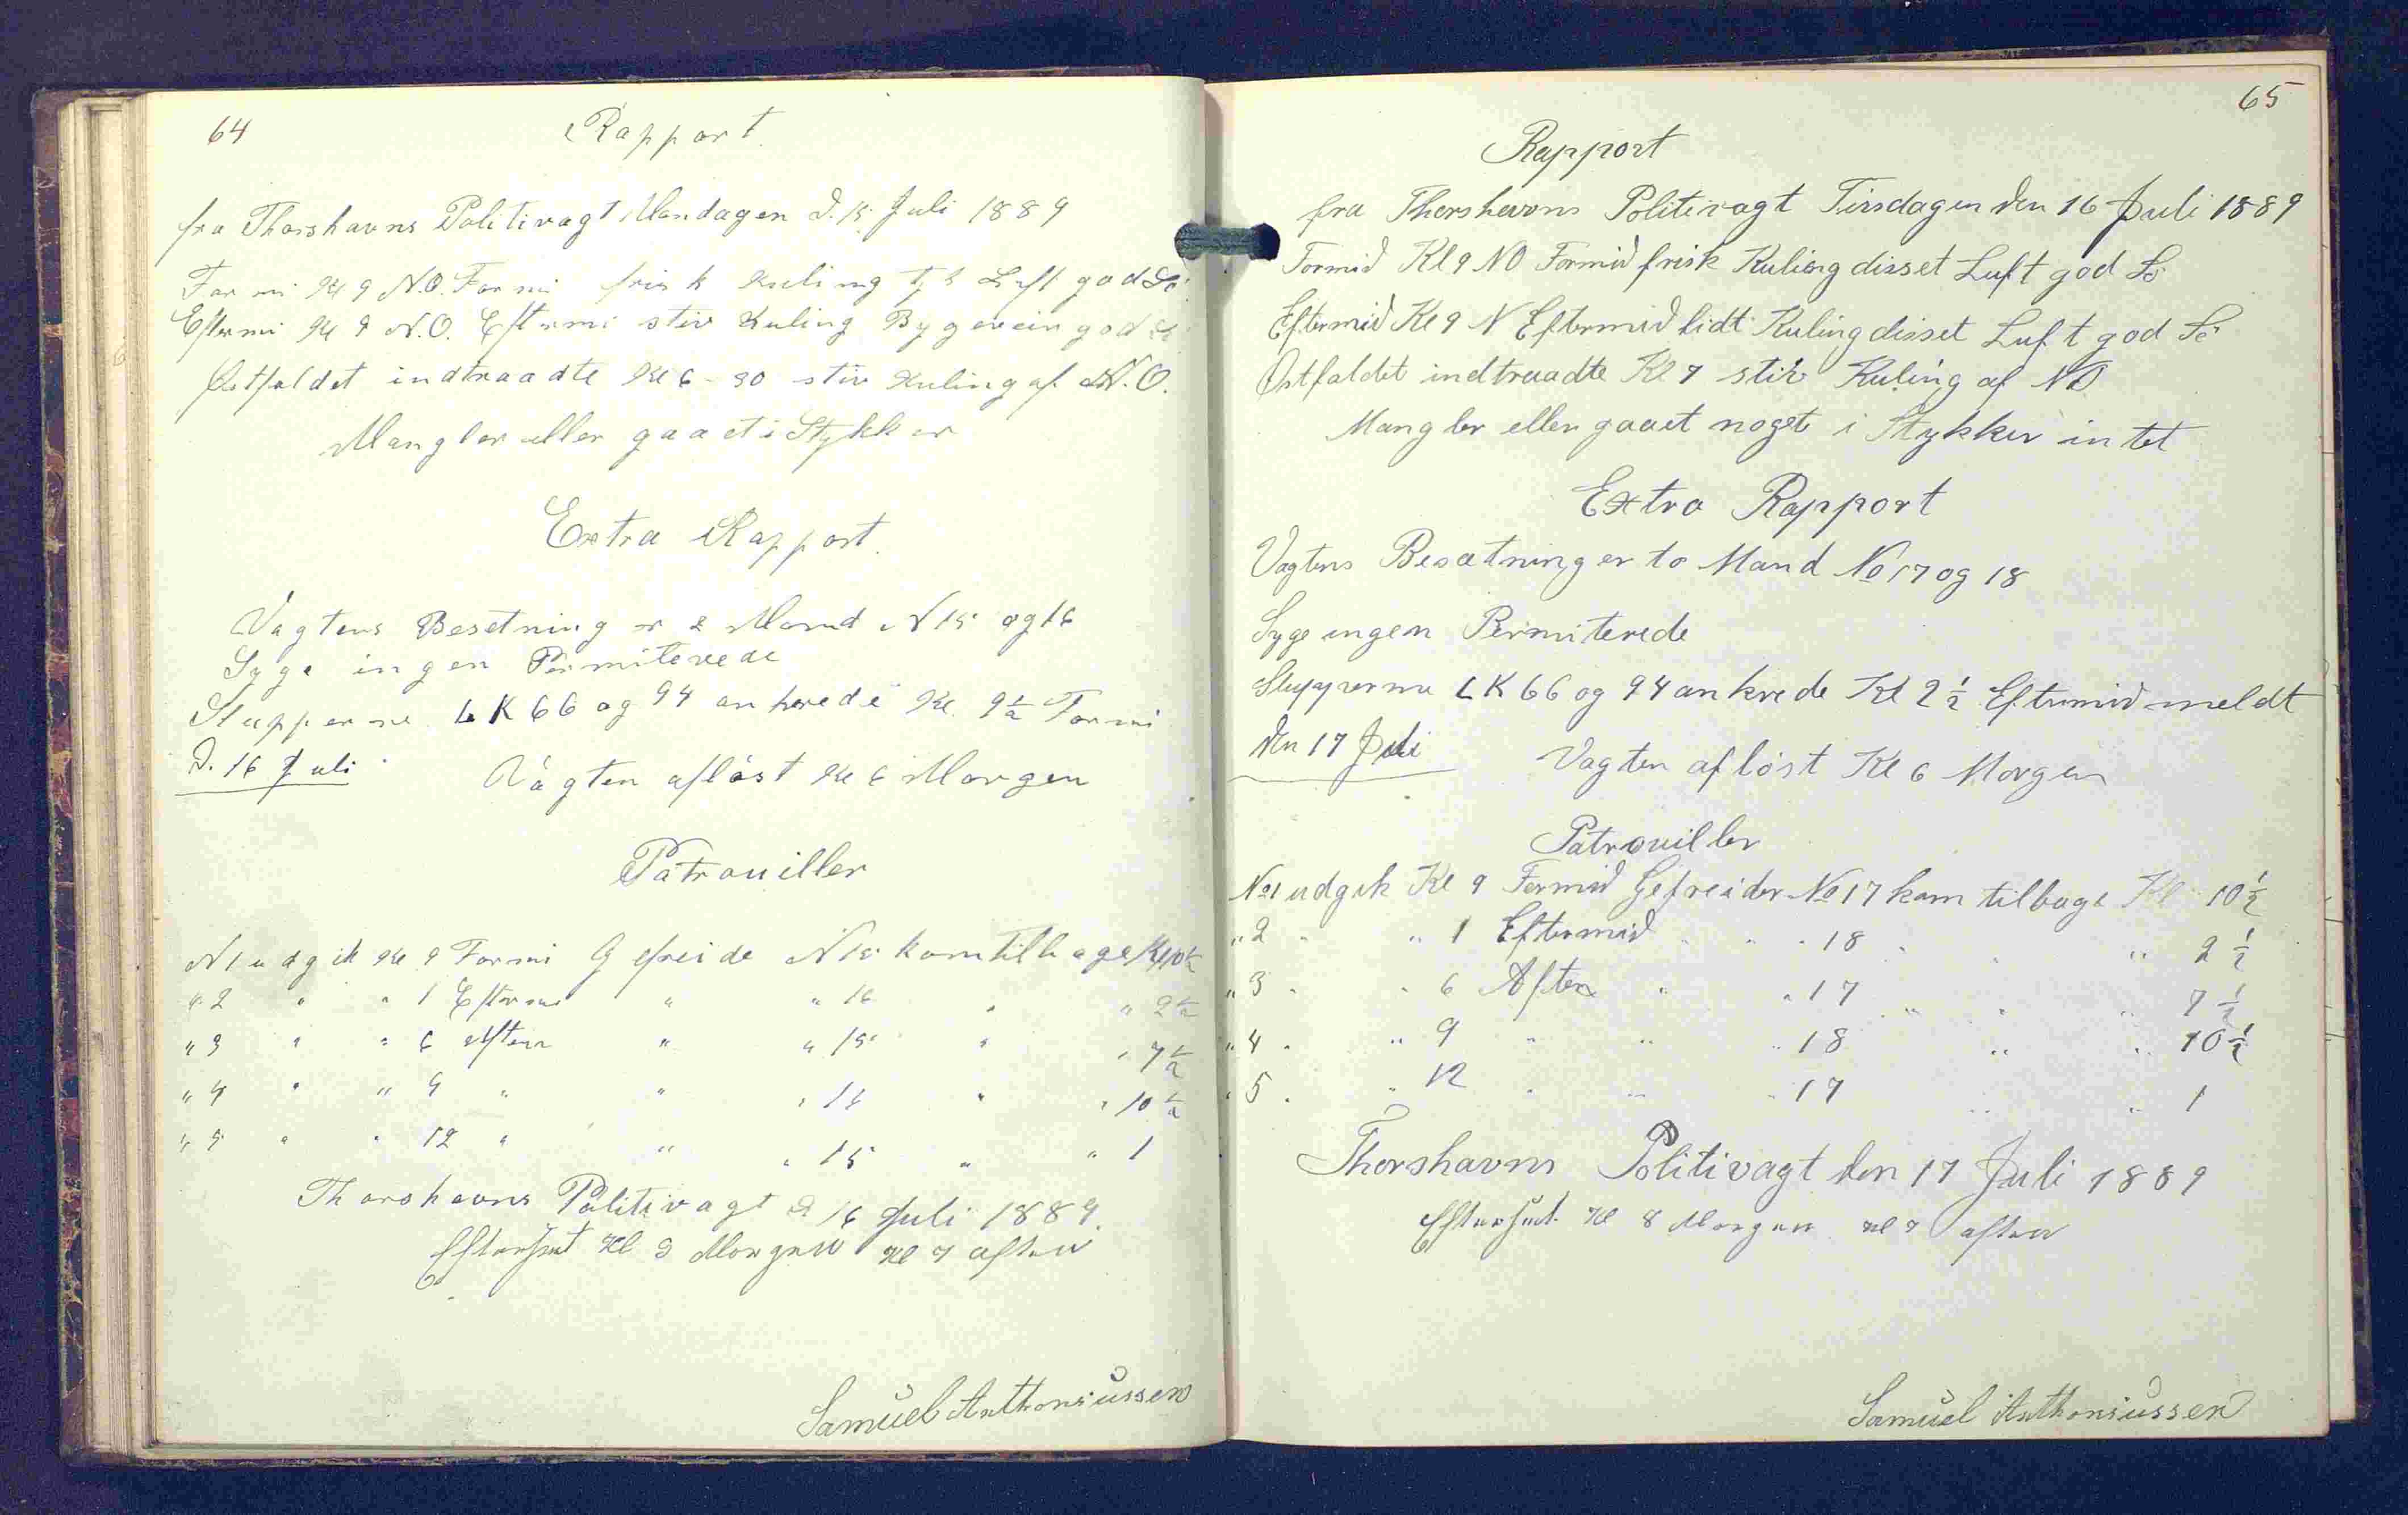 64
Rapport
fra Thorshavns Politivagt Mandagen d. 15 Juli 1889
Formi Kl 9 N.O. Formi frisk Kuling tyk Luft god Sö
Eftermi Kl 9 N.O. Eftermi stiv Kuling Bygerein god Sö
Östfaldet indtraadte Kl 6-30 stiv Kuling af N.O.
Mangler eller gaaet i Stykker
Extra Rapport.
Vagtens Besetning er 2 Mand N 15 og 16
Syge ingen Permiterede
Slupperne LK 66 og 94 ankrede Kl. 9½ Formi
D. 16 Juli Vagten aflöst Kl 6 Morgen
Patrouiller
N 1 udgik Kl 9 Formi Gefreide N 15 kom tilbage Kl 10½
" 2 " " 1 Eftermi " " 16 " " 2½
" 3 " " 6 Aften " " 15 " " 7½
" 4 " " 9 " " " 16 " " 10½
" 5 " " 12 " " " 15 " " 1
Thorshavns Politivagt d 16 Juli 1889.
Efterseet Kl 8 Morgen Kl 7 aften
Samuel Anthoniussen
65
Rapport
fra Thorshavns Politivagt Tirsdagen den 16 Juli 1889
Formid Kl 9 NO Formid frisk Kuling disset Luft god Sö
Eftermid Kl 9 N Eftermid lidt Kuling disset Luft god Sö
Östfaldet indtraadte Kl 7 stiv Kuling af NO
Mangler eller gaaet noget i Stykker intet
Extra Rapport
Vagtens Besætning er to Mand No 17 og 18
Syge ingen Permiterede
Slupperne LK 66 og 94 ankrede Kl 2½ Eftermid meldt
den 17 Juli Vagten aflöst Kl 6 Morgen
Patrouiller
No 1 udgik Kl 9 Formid Gefreider No 17 kom tilbage Kl 10½
" 2 " " 1 Eftermid " " 18 " " 2½
" 3 " " 6 Aften " " 17 " " " 7½
" 4 " " 9 " " " 18 " " 10½
" 5 " " 12 " " " 17 " " 1
Thorshavns Politivagt den 17 Juli 1889
Efterseet Kl 8 Morgen Kl 7 aften
Samuel Anthoniussen